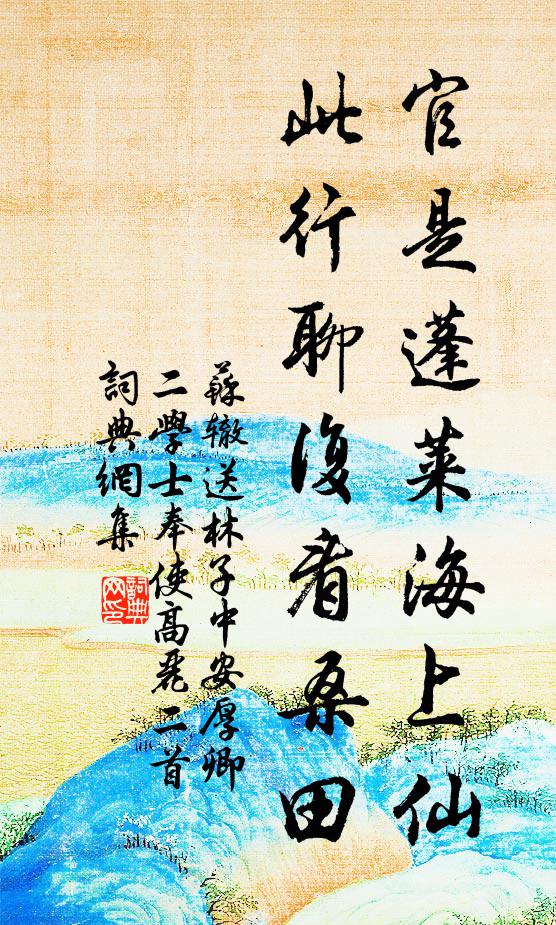 官是蓬莱海上仙
此行聊復看桑田
蘇辙送林子中安厚卿
二學士奉使高麗二首
詞典網集